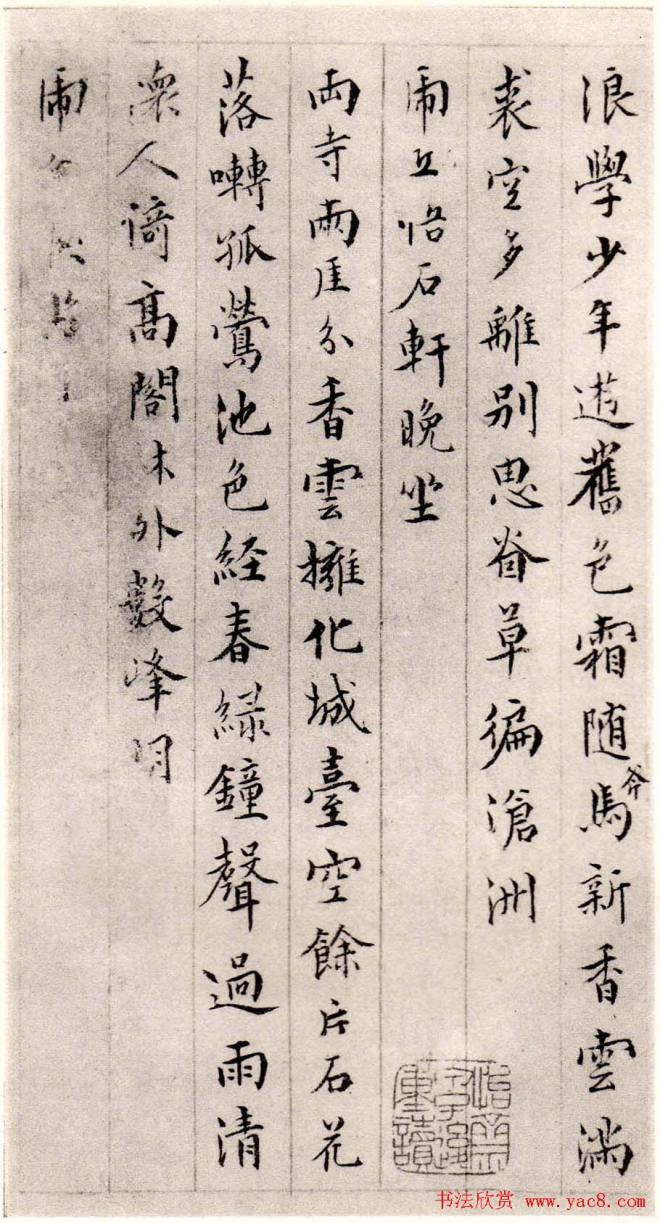 浪學少年遊舊色霜随馬新香雲滿
裘空多離别思眷草徧滄洲
虎丘悟石軒晚坐
両寺兩厓分香雲擁化城臺空餘片石花
落囀孤鶯池色経春緑鐘聲過雨清
懐人倚高閣林外數峰明
虎
书法欣赏 www.yac8.com